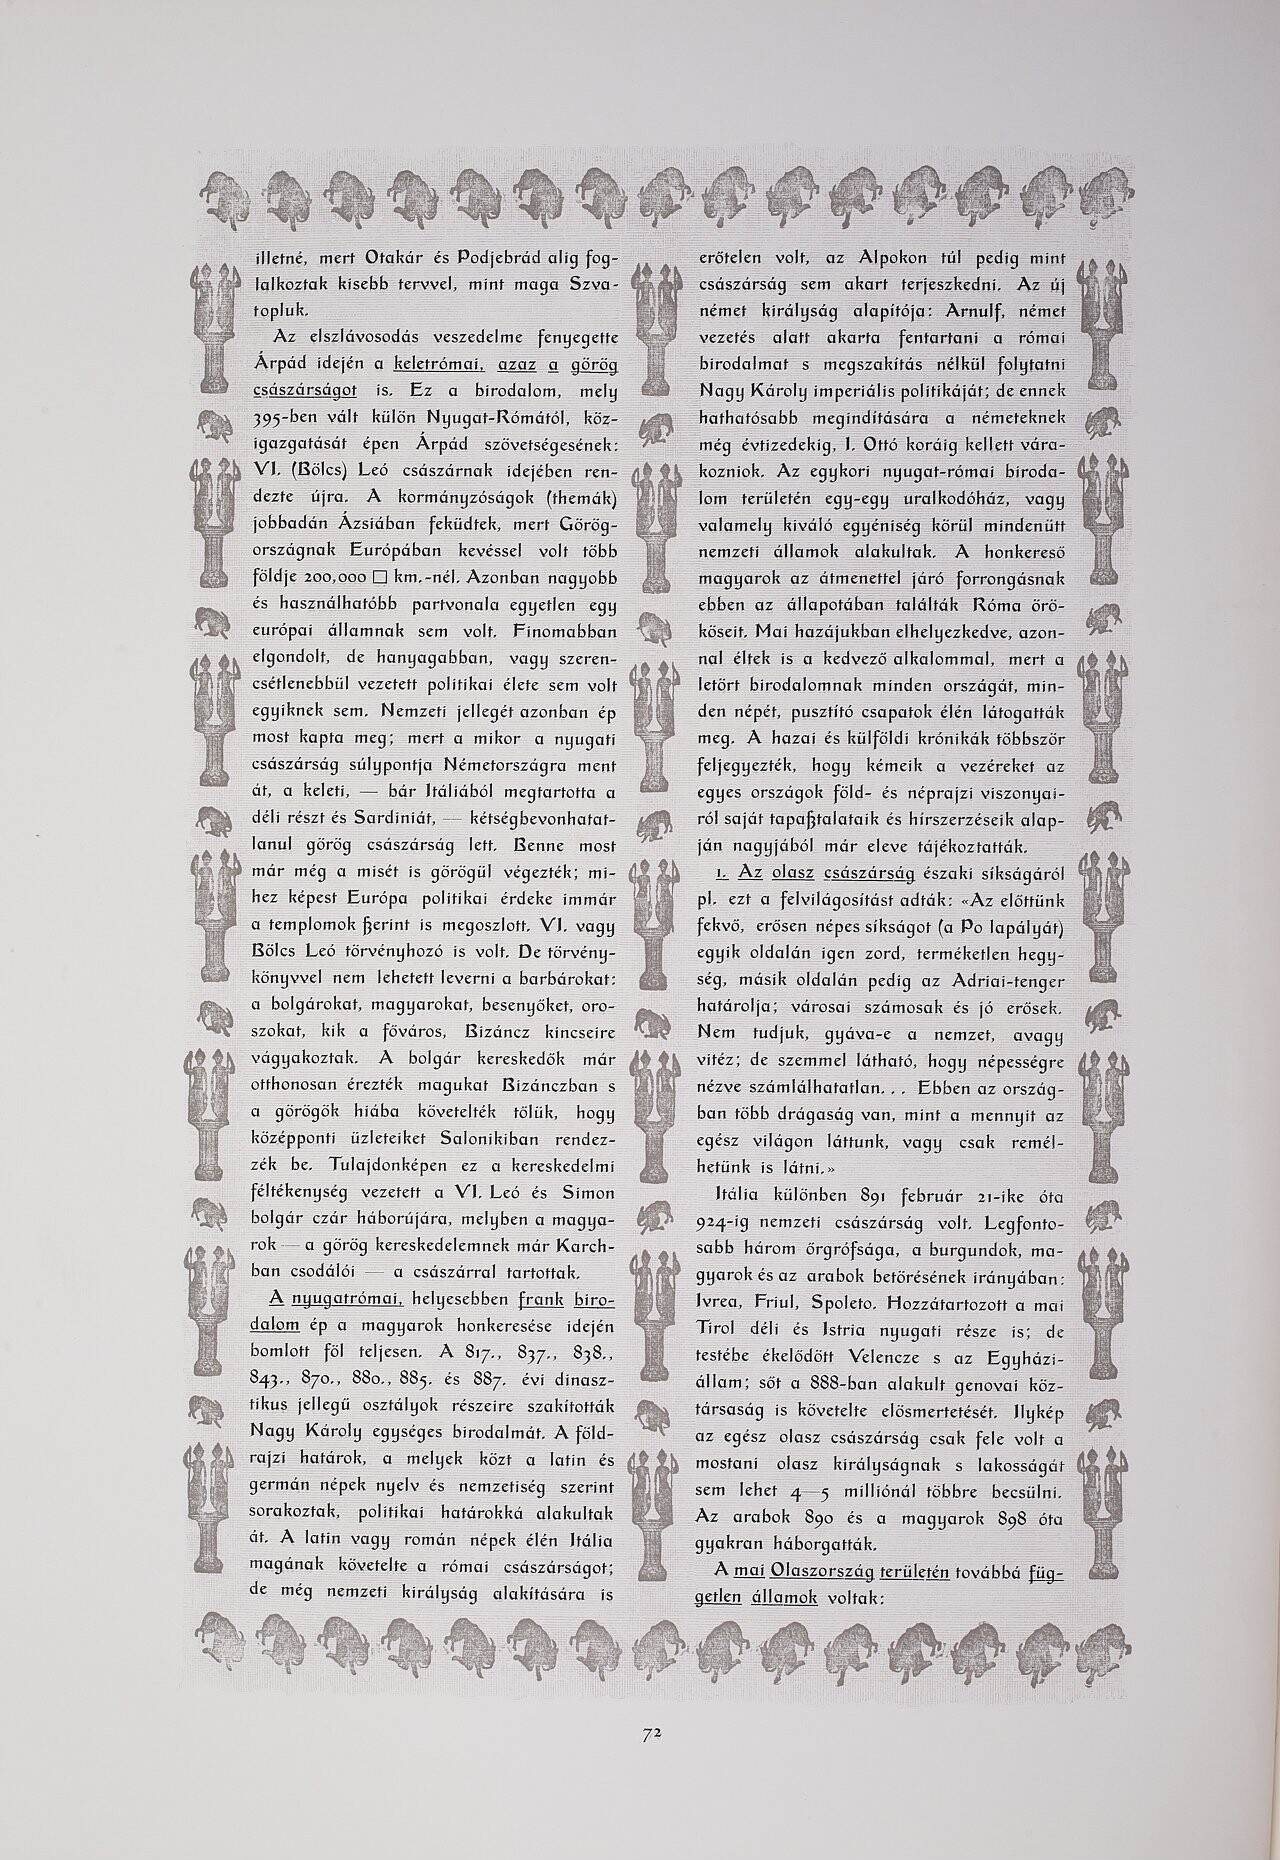 illetné, mert Otakár és Podjebrád alig fog-
lalkoztak kisebb tervvel, mint maga Szva-
topluk.
Az elszlávosodás veszedelme fenyegette
Árpád idején a keletrómai, azaz a görög
császárságot is. Ez a birodalom, mely
395-ben vált külön Nyugat-Rómától, köz-
igazgatását épen Árpád szövetségesének:
VI. (Bölcs) Leó császárnak idejében ren-
dezte újra. A kormányzóságok (themák)
jobbadán Ázsiában feküdtek, mert Görög-
országnak Európában kevéssel volt több
földje 200,000 □ km.-nél. Azonban nagyobb
és használhatóbb partvonala egyetlen egy
európai államnak sem volt. Finomabban
elgondolt, de hanyagabban, vagy szeren-
csétlenebbül vezetett politikai élete sem volt
egyiknek sem. Nemzeti jellegét azonban ép
most kapta meg; mert a mikor a nyugati
császárság súlypontja Németországra ment
át, a keleti, — bár Itáliából megtartotta a
déli részt és Sardiniát, — kétségbevonhatat-
lanul görög császárság lett. Benne most
már még a misét is görögül végezték; mi-
hez képest Európa politikai érdeke immár
a templomok ßerint is megoszlott. VI. vagy
Bölcs Leó törvényhozó is volt. De törvény-
könyvvel nem lehetett leverni a barbárokat:
a bolgárokat, magyarokat, besenyőket, oro-
szokat, kik a főváros, Bizáncz kincseire
vágyakoztak. A bolgár kereskedők már
otthonosan érezték magukat Bizánczban s
a görögök hiába követelték tőlük, hogy
középponti üzleteiket Salonikiban rendez-
zék be. Tulajdonképen ez a kereskedelmi
féltékenység vezetett a VI. Leó és Simon
bolgár czár háborújára, melyben a magya-
rok — a görög kereskedelemnek már Karch-
ban csodálói — a császárral tartottak.
A nyugatrómai, helyesebben frank biro-
dalom ép a magyarok honkeresése idején
bomlott föl teljesen. A 817., 837., 838.,
843., 870., 880., 885. és 887. évi dinasz-
tikus jellegű osztályok részeire szakították
Nagy Károly egységes birodalmát. A föld-
rajzi határok, a melyek közt a latin és
germán népek nyelv és nemzetiség szerint
sorakoztak, politikai határokká alakultak
át. A latin vagy román népek élén Itália
magának követelte a római császárságot;
de még nemzeti királyság alakítására is
erőtelen volt, az Alpokon túl pedig mint
császárság sem akart terjeszkedni. Az új
német királyság alapítója: Arnulf, német
vezetés alatt akarta fentartani a római
birodalmat s megszakítás nélkül folytatni
Nagy Károly imperiális politikáját; de ennek
hathatósabb megindítására a németeknek
még évtizedekig, I. Ottó koráig kellett vára-
kozniok. Az egykori nyugat-római biroda-
lom területén egy-egy uralkodóház, vagy
valamely kiváló egyéniség körül mindenütt
nemzeti államok alakultak. A honkereső
magyarok az átmenettel járó forrongásnak
ebben az állapotában találták Róma örö-
köseit. Mai hazájukban elhelyezkedve, azon-
nal éltek is a kedvező alkalommal, mert a
letört birodalomnak minden országát, min-
den népét, pusztító csapatok élén látogatták
meg. A hazai és külföldi krónikák többször
feljegyezték, hogy kémeik a vezéreket az
egyes országok föld- és néprajzi viszonyai-
ról saját tapaßtalataik és hírszerzéseik alap-
ján nagyjából már eleve tájékoztatták.
1. Az olasz császárság északi síkságáról
pl. ezt a felvilágosítást adták: «Az előttünk
fekvő, erősen népes síkságot (a Po lapályát)
egyik oldalán igen zord, terméketlen hegy-
ség, másik oldalán pedig az Adriai-tenger
határolja; városai számosak és jó erősek.
Nem tudjuk, gyáva-e a nemzet, avagy
vitéz; de szemmel látható, hogy népességre
nézve számlálhatatlan... Ebben az ország-
ban több drágaság van, mint a mennyit az
egész világon láttunk, vagy csak remél-
hetünk is látni.»
Itália különben 891 február 21-ike óta
924-ig nemzeti császárság volt. Legfonto-
sabb három őrgrófsága, a burgundok, ma-
gyarok és az arabok betörésének irányában:
Ivrea, Friul, Spoleto. Hozzátartozott a mai
Tirol déli és Istria nyugati része is; de
testébe ékelődött Velencze s az Egyházi-
állam; sőt a 888-ban alakult genovai köz-
társaság is követelte elösmertetését. Ilykép
az egész olasz császárság csak fele volt a
mostani olasz királyságnak s lakosságát
sem lehet 4—5 milliónál többre becsülni.
Az arabok 890 és a magyarok 898 óta
gyakran háborgatták.
A mai Olaszország területén továbbá füg-
getlen államok voltak:
72